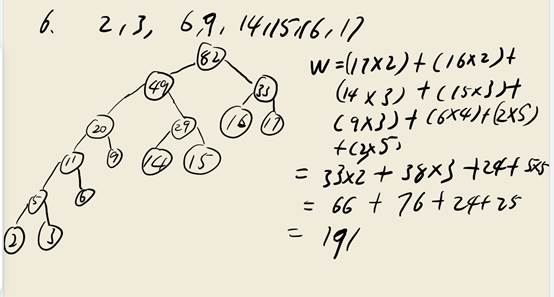 6. 2,3, 6,9, 14,15,16,17
82
49 33
20 29 16 17
11 9 14 15
5 6
2 3
W=(17×2)+(16×2)+
(14×3)+(15×3)+
(9×3)+(6×4)+(2×5)
+(2×5)
= 33×2+38×3+24+5×5
= 66+76+24+25
= 191